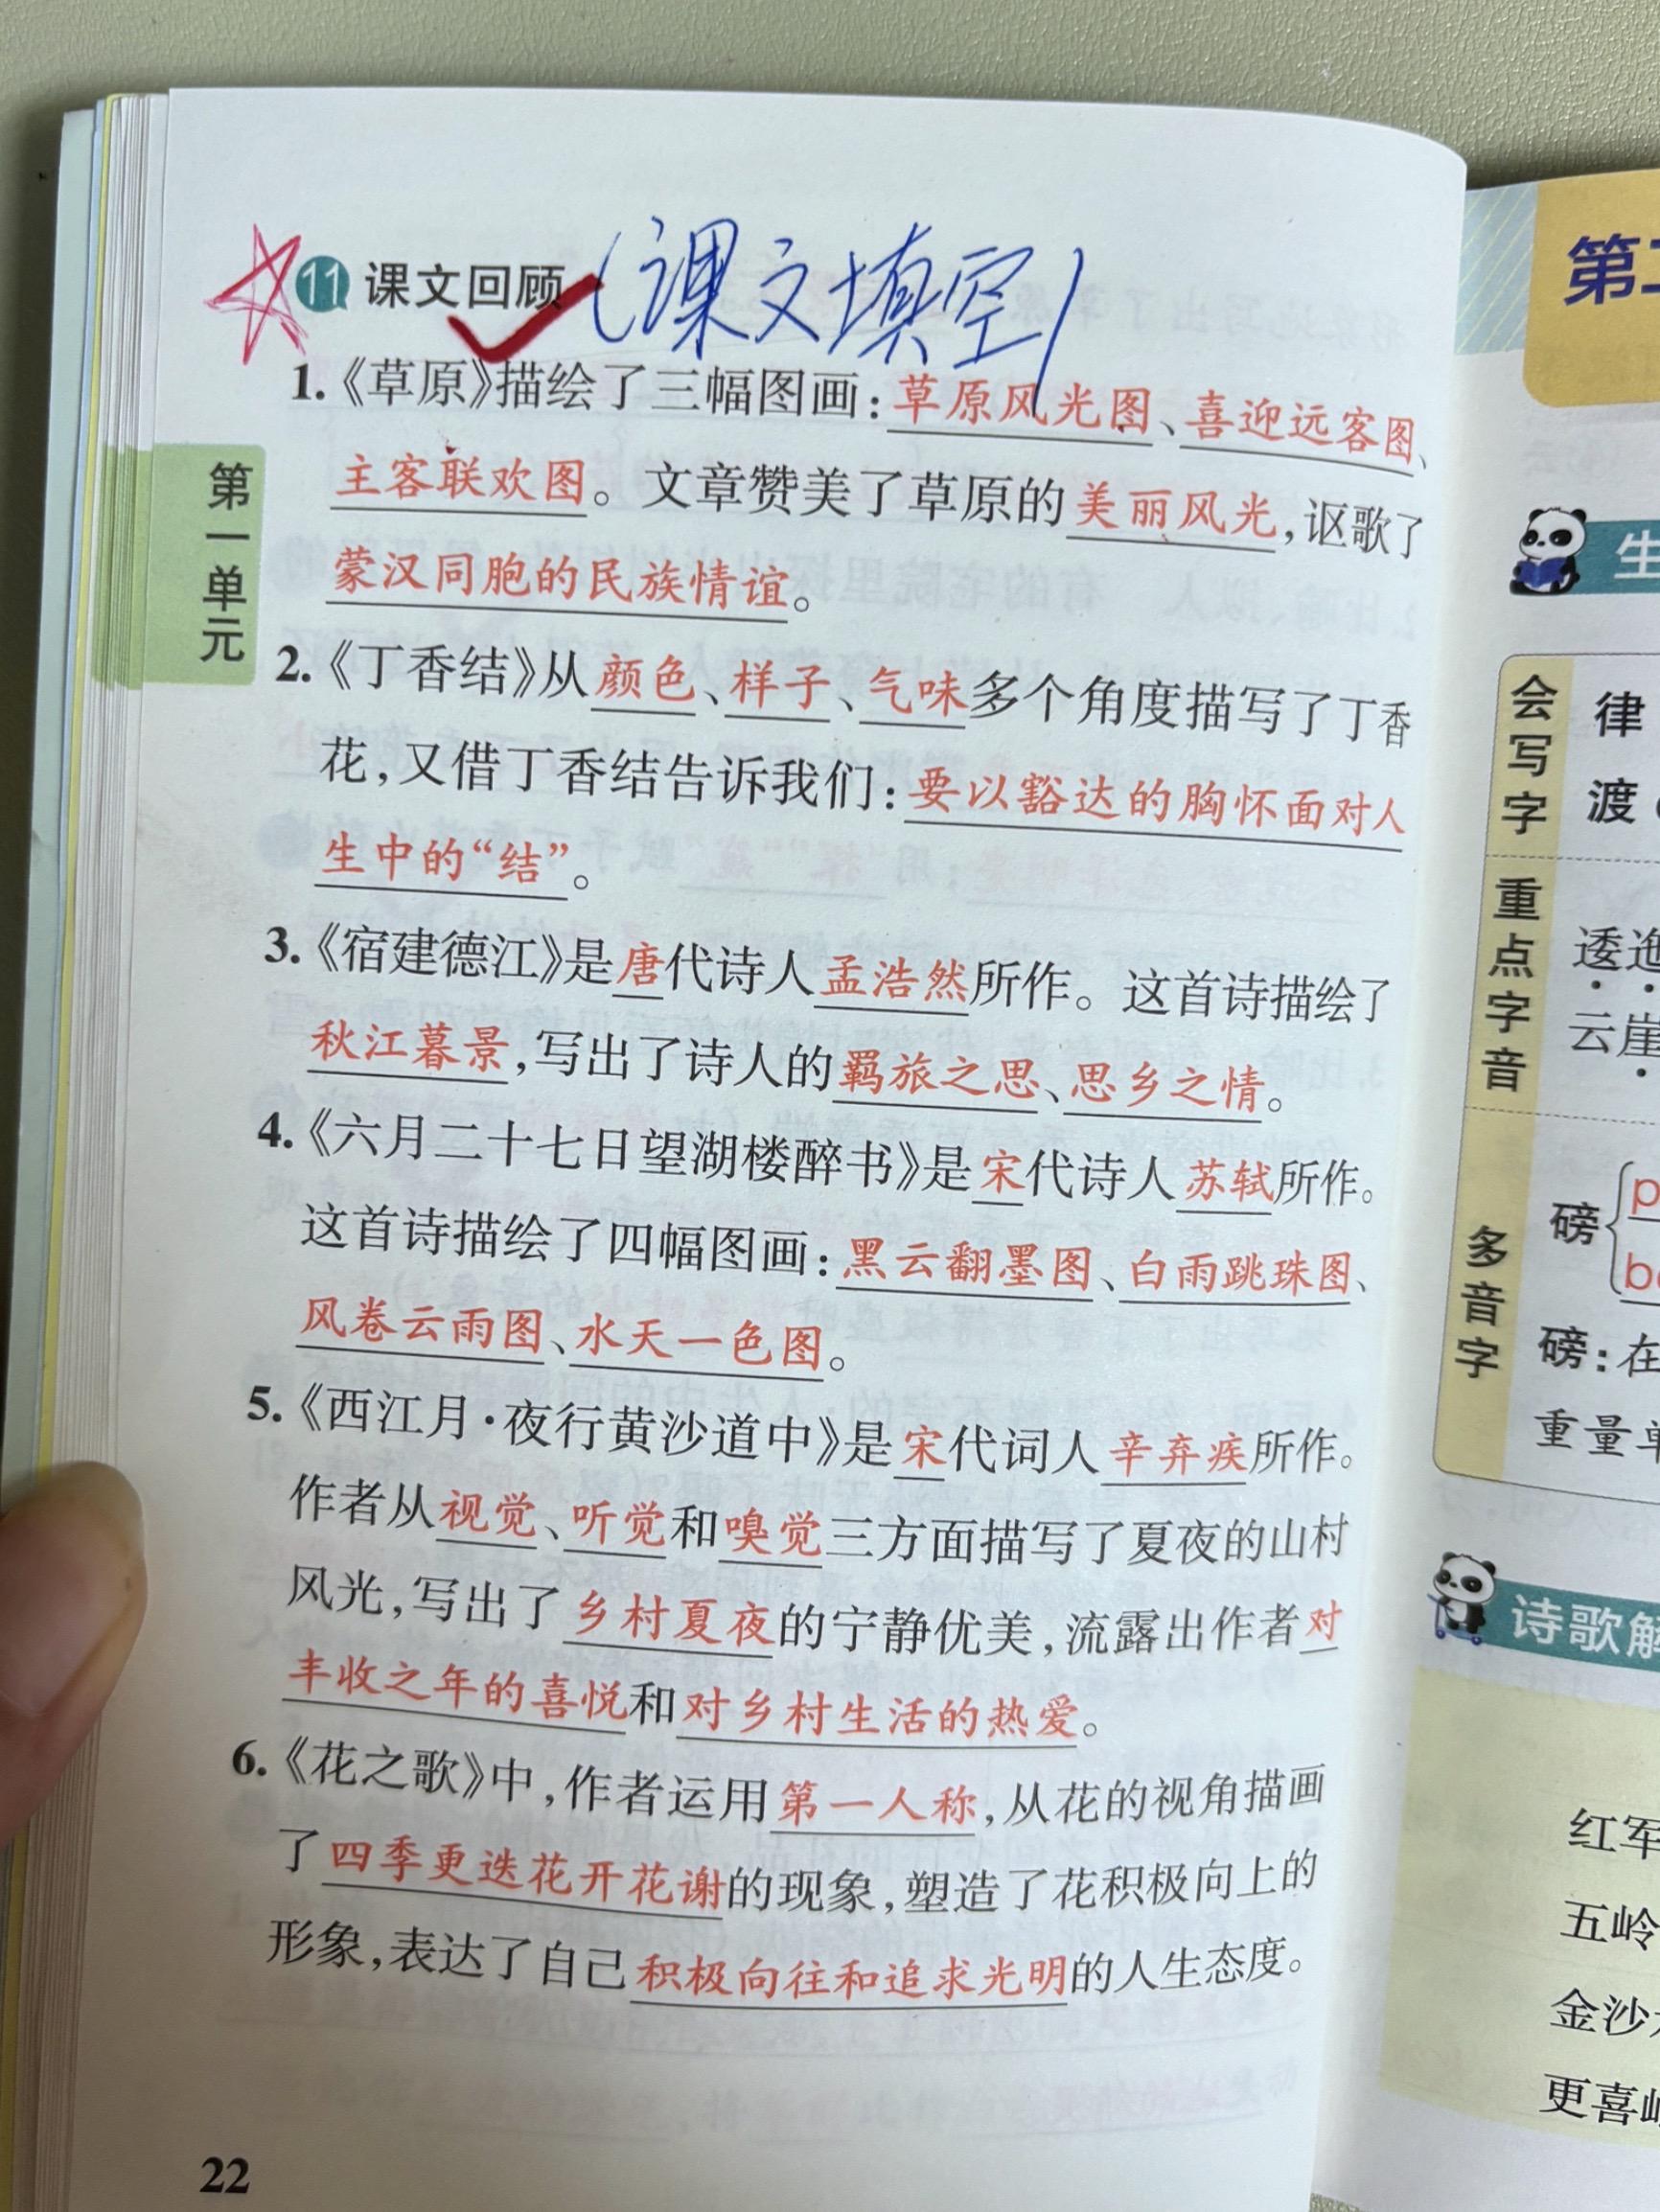 11 课文回顾 (课文填空)
1.《草原》描绘了三幅图画:草原风光图、喜迎远客图、
主客联欢图。文章赞美了草原的美丽风光,讴歌了
蒙汉同胞的民族情谊。
2.《丁香结》从颜色、样子、气味多个角度描写了丁香
花,又借丁香结告诉我们:要以豁达的胸怀面对人
生中的“结”。
3.《宿建德江》是唐代诗人孟浩然所作。这首诗描绘了
秋江暮景,写出了诗人的羁旅之思、思乡之情。
4.《六月二十七日望湖楼醉书》是宋代诗人苏轼所作。
这首诗描绘了四幅图画:黑云翻墨图、白雨跳珠图、
风卷云雨图、水天一色图。
5.《西江月·夜行黄沙道中》是宋代词人辛弃疾所作。
作者从视觉、听觉和嗅觉三方面描写了夏夜的山村
风光,写出了乡村夏夜的宁静优美,流露出作者对
丰收之年的喜悦和对乡村生活的热爱。
6.《花之歌》中,作者运用第一人称,从花的视角描画
了四季更迭花开花谢的现象,塑造了花积极向上的
形象,表达了自己积极向往和追求光明的人生态度。
第一单元
22
第
生
会写字
律
渡
重点字音
逶迤
云崖
多音字
磅
p
b
磅:在
重量单
诗歌解
红军
五岭
金沙
更喜